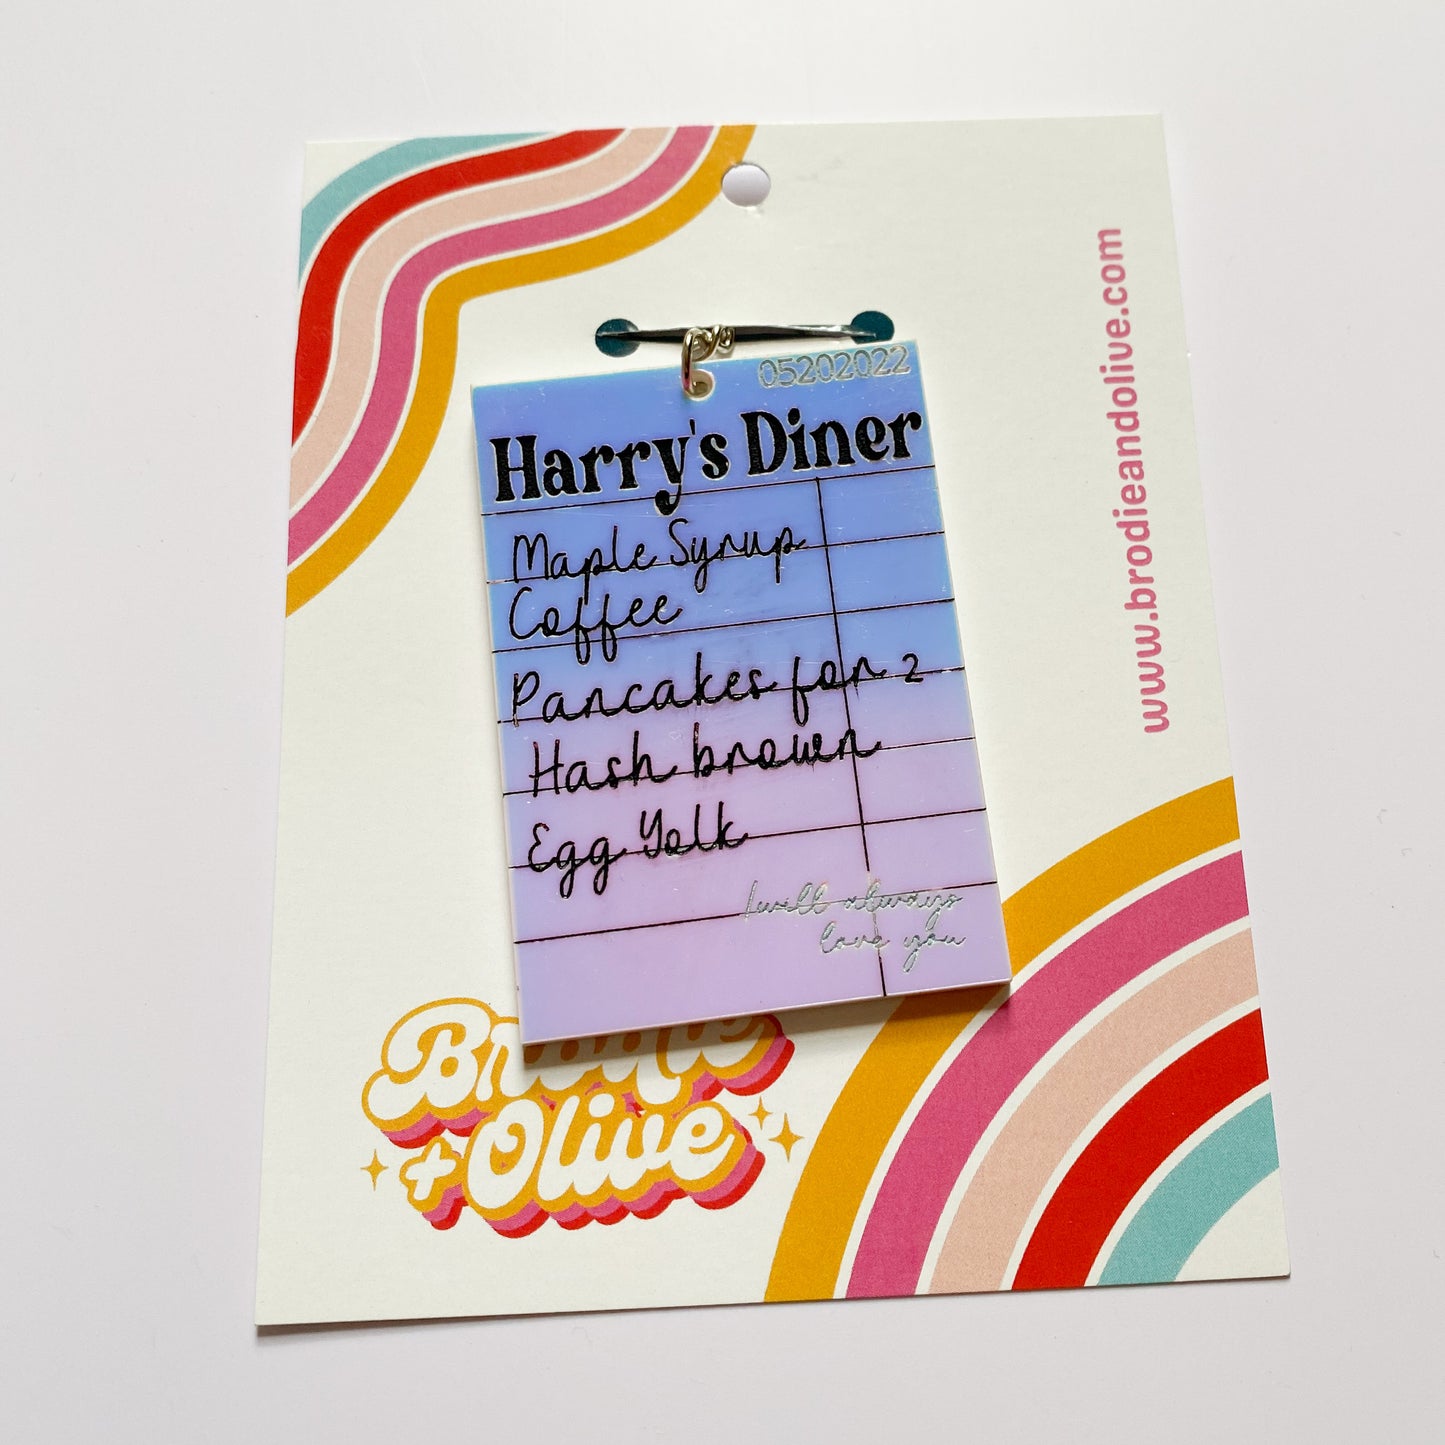 05202022
Harry's Diner
Maple Syrup
Coffee
Pancakes for 2
Hash brown
Egg Yolk
I will always
love you
Brodie
+ Olive
www.brodieandolive.com